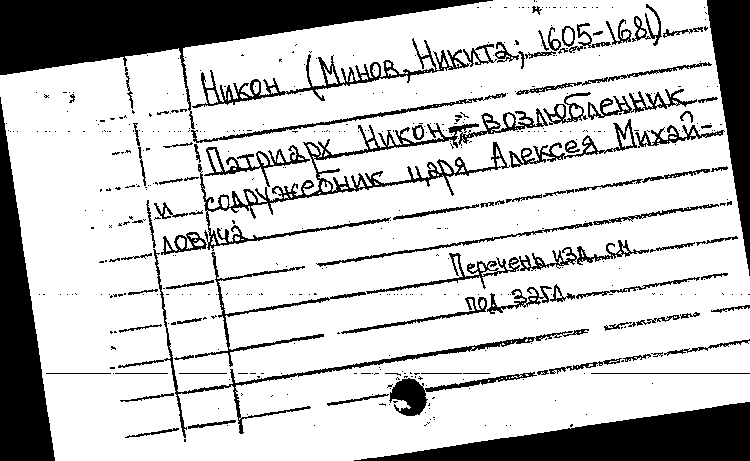 Никон (Минов, Никита; 1605-1681).
Патриарх Никон - возлюбленник
и содружебник царя Алексея Михай-
ловича.
Перечень изд. см.
под загл.